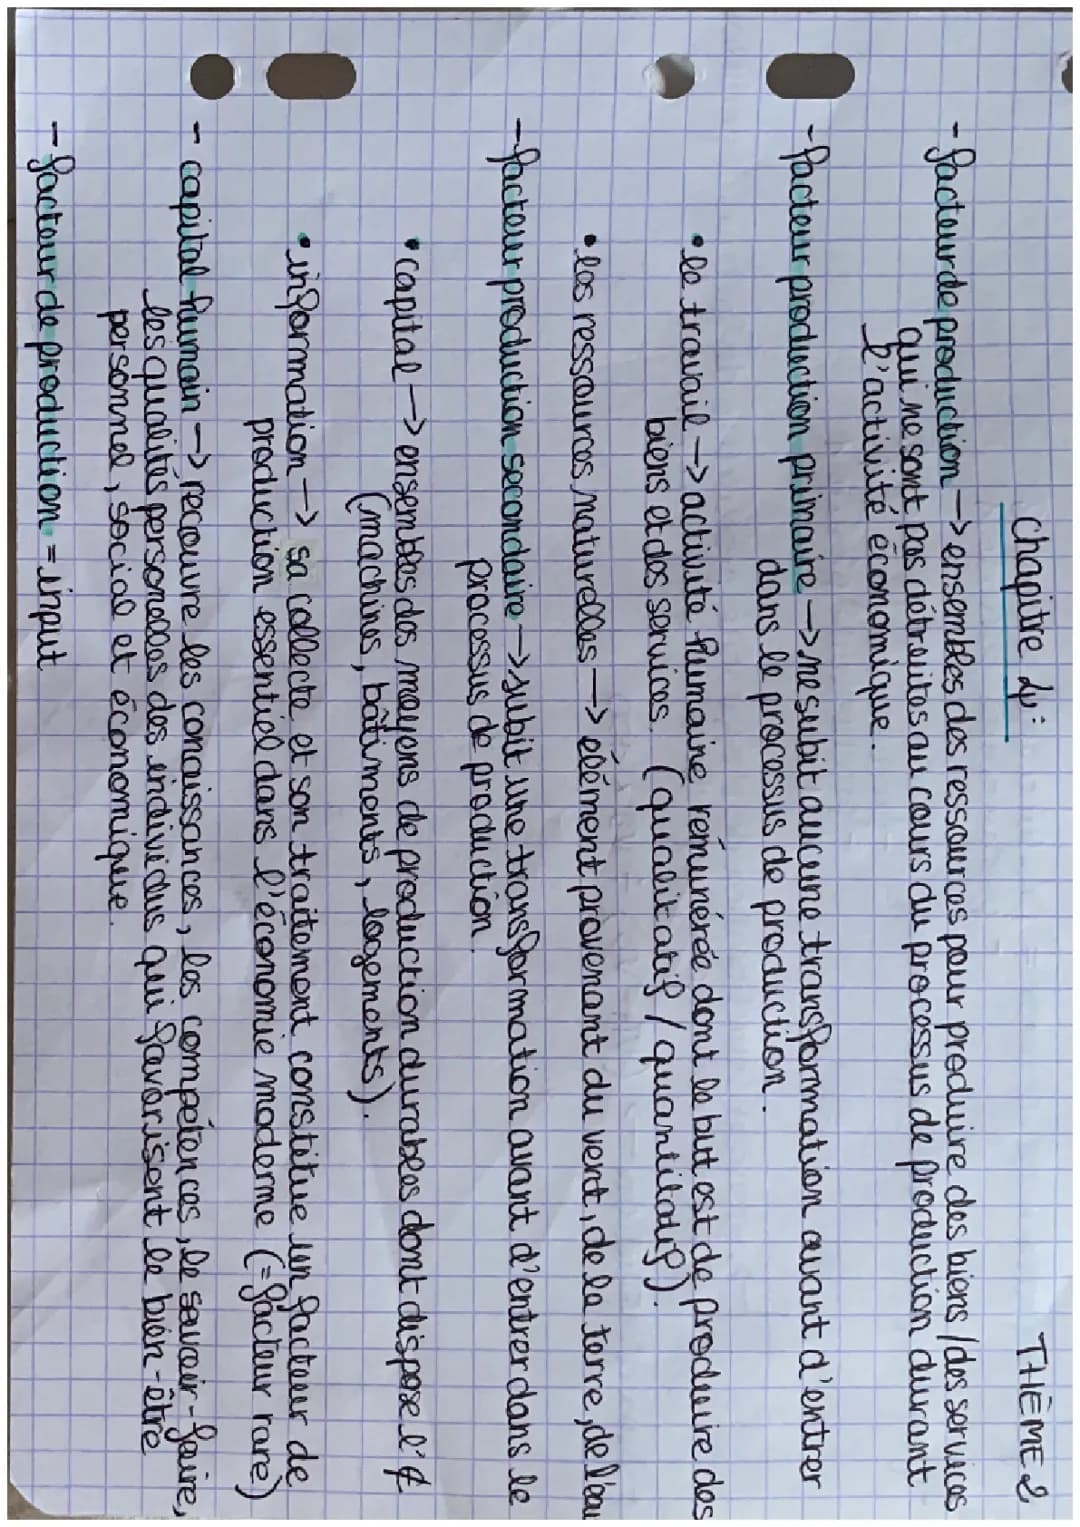 THÈME 2
Chapitre 4:
- facteur de production -> ensembles des ressources pour produire des biens / des services
qui ne sont pas détruites au cours du processus de production durant
l'activité économique.
- facteur production primaire -> ne subit aucune transformation avant d'entrer
dans le processus de production.
• le travail -> activité humaine rémunérée dont le but est de produire des
biens et des services. (qualitatif / quantitatif).
• les ressources naturelles -> élément provenant du vent, de la terre, de l'eau
- facteur production secondaire -> subit une transformation avant d'entrer dans le
processus de production.
• capital -> ensembles des moyens de production durables dont dispose l'É
(machines, bâtiments, logements).
• information -> sa collecte et son traitement constitue un facteur de
production essentiel dans l'économie moderne (= facteur rare)
- capital humain -> recouvre les conaissances, les compétences, le savoir-faire,
les qualités personelles des individus qui favorisent le bien-être
personnel, social et économique.
- facteur de production = input